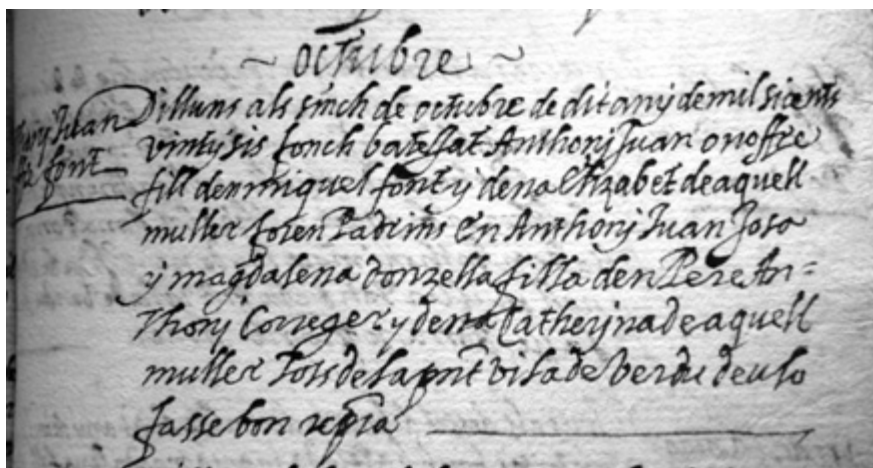 ~ octubre ~
Juan
font
Dilluns als sinch de octubre de dit any de mil sicents
vintysis fonch batejat Anthonj Juan onoffre
fill den miquel font y dena Elizabet de aquell
muller foren Padrins En Anthonj Juan Joso
y magdalena donzella filla den Pere An=
thonj Correger y dena Catherjna de aquell
muller tots de la pnt vila de Verdu deu lo
fasse bon